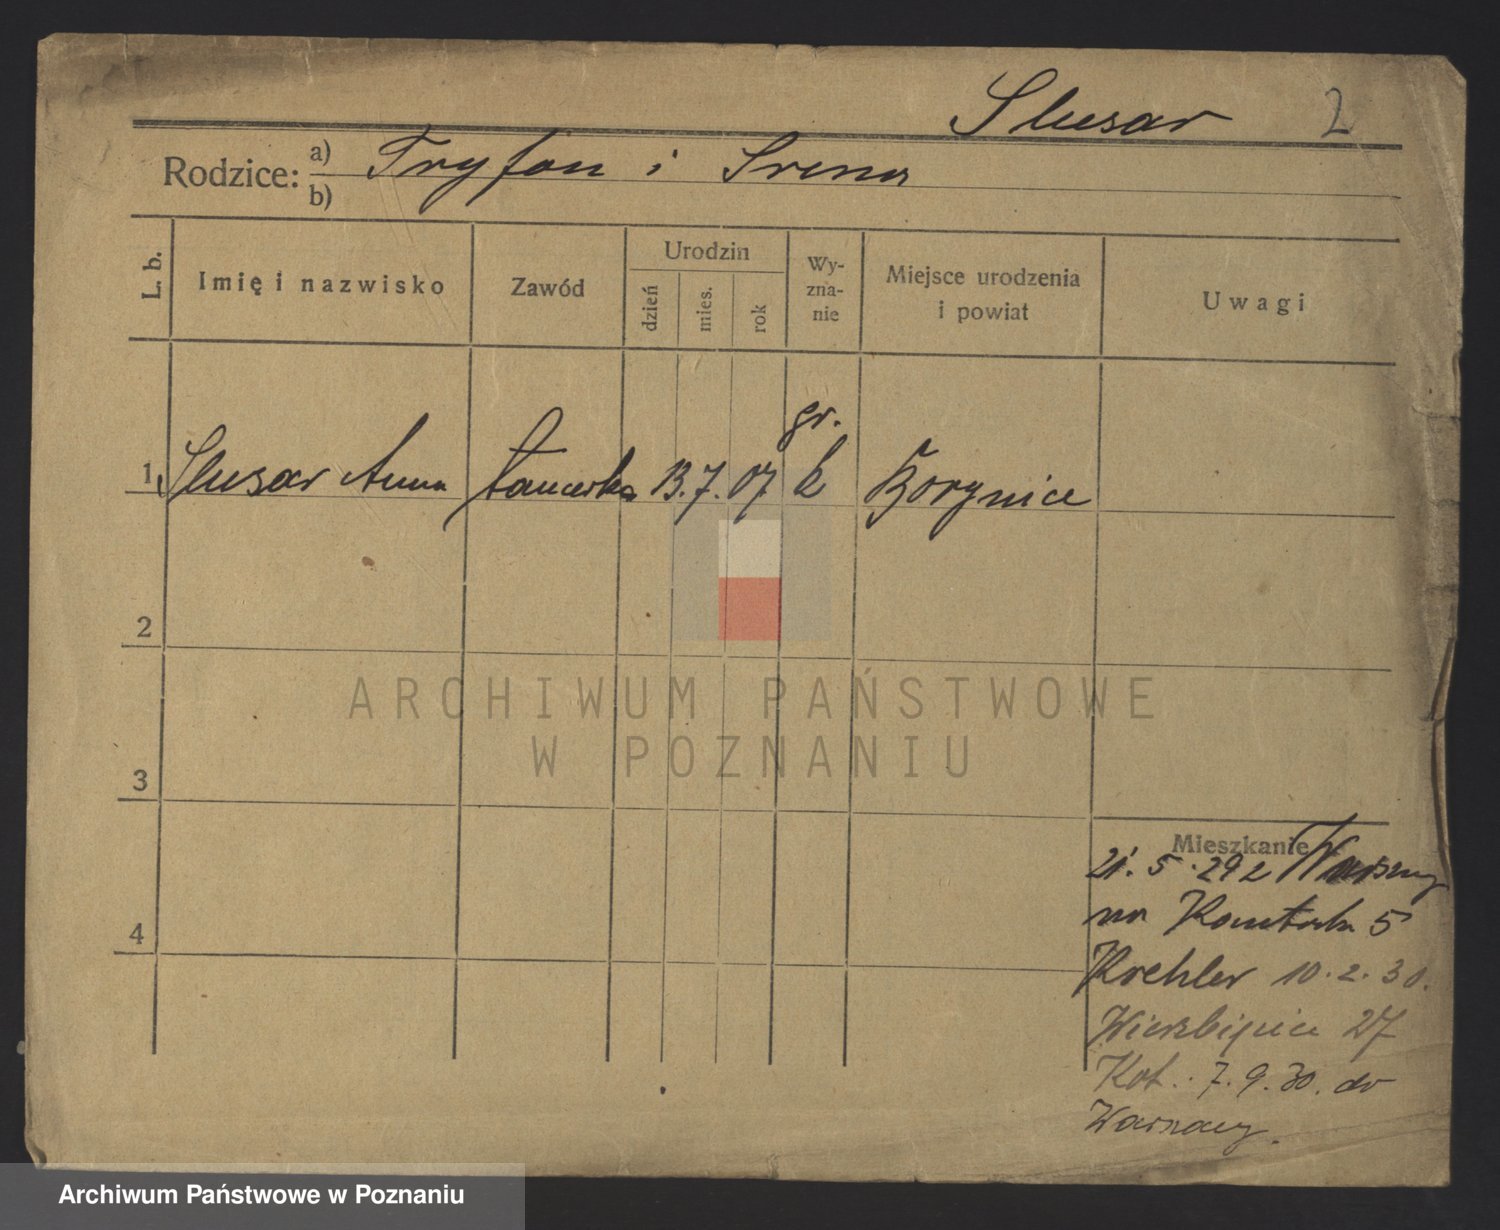 Slusar 2
Rodzice: a) Tryfon i Irena
b)
L. b.
Imię i nazwisko
Zawód
Urodzin
dzień
mies.
rok
Wy-
zna-
nie
Miejsce urodzenia
i powiat
Uwagi
gr.
1 Slusar Anna tancerka 13. 7. 07 k Borynice
2
ARCHIWUM PAŃSTWOWE
W POZNANIU
3
Mieszkanie
21. 5. 29 z Warszawy
na 5
4
Krehler 10. 2. 30.
Wierzbięcice 27
Kot. 7. 9. 30. do
Warszawy.
Archiwum Państwowe w Poznaniu